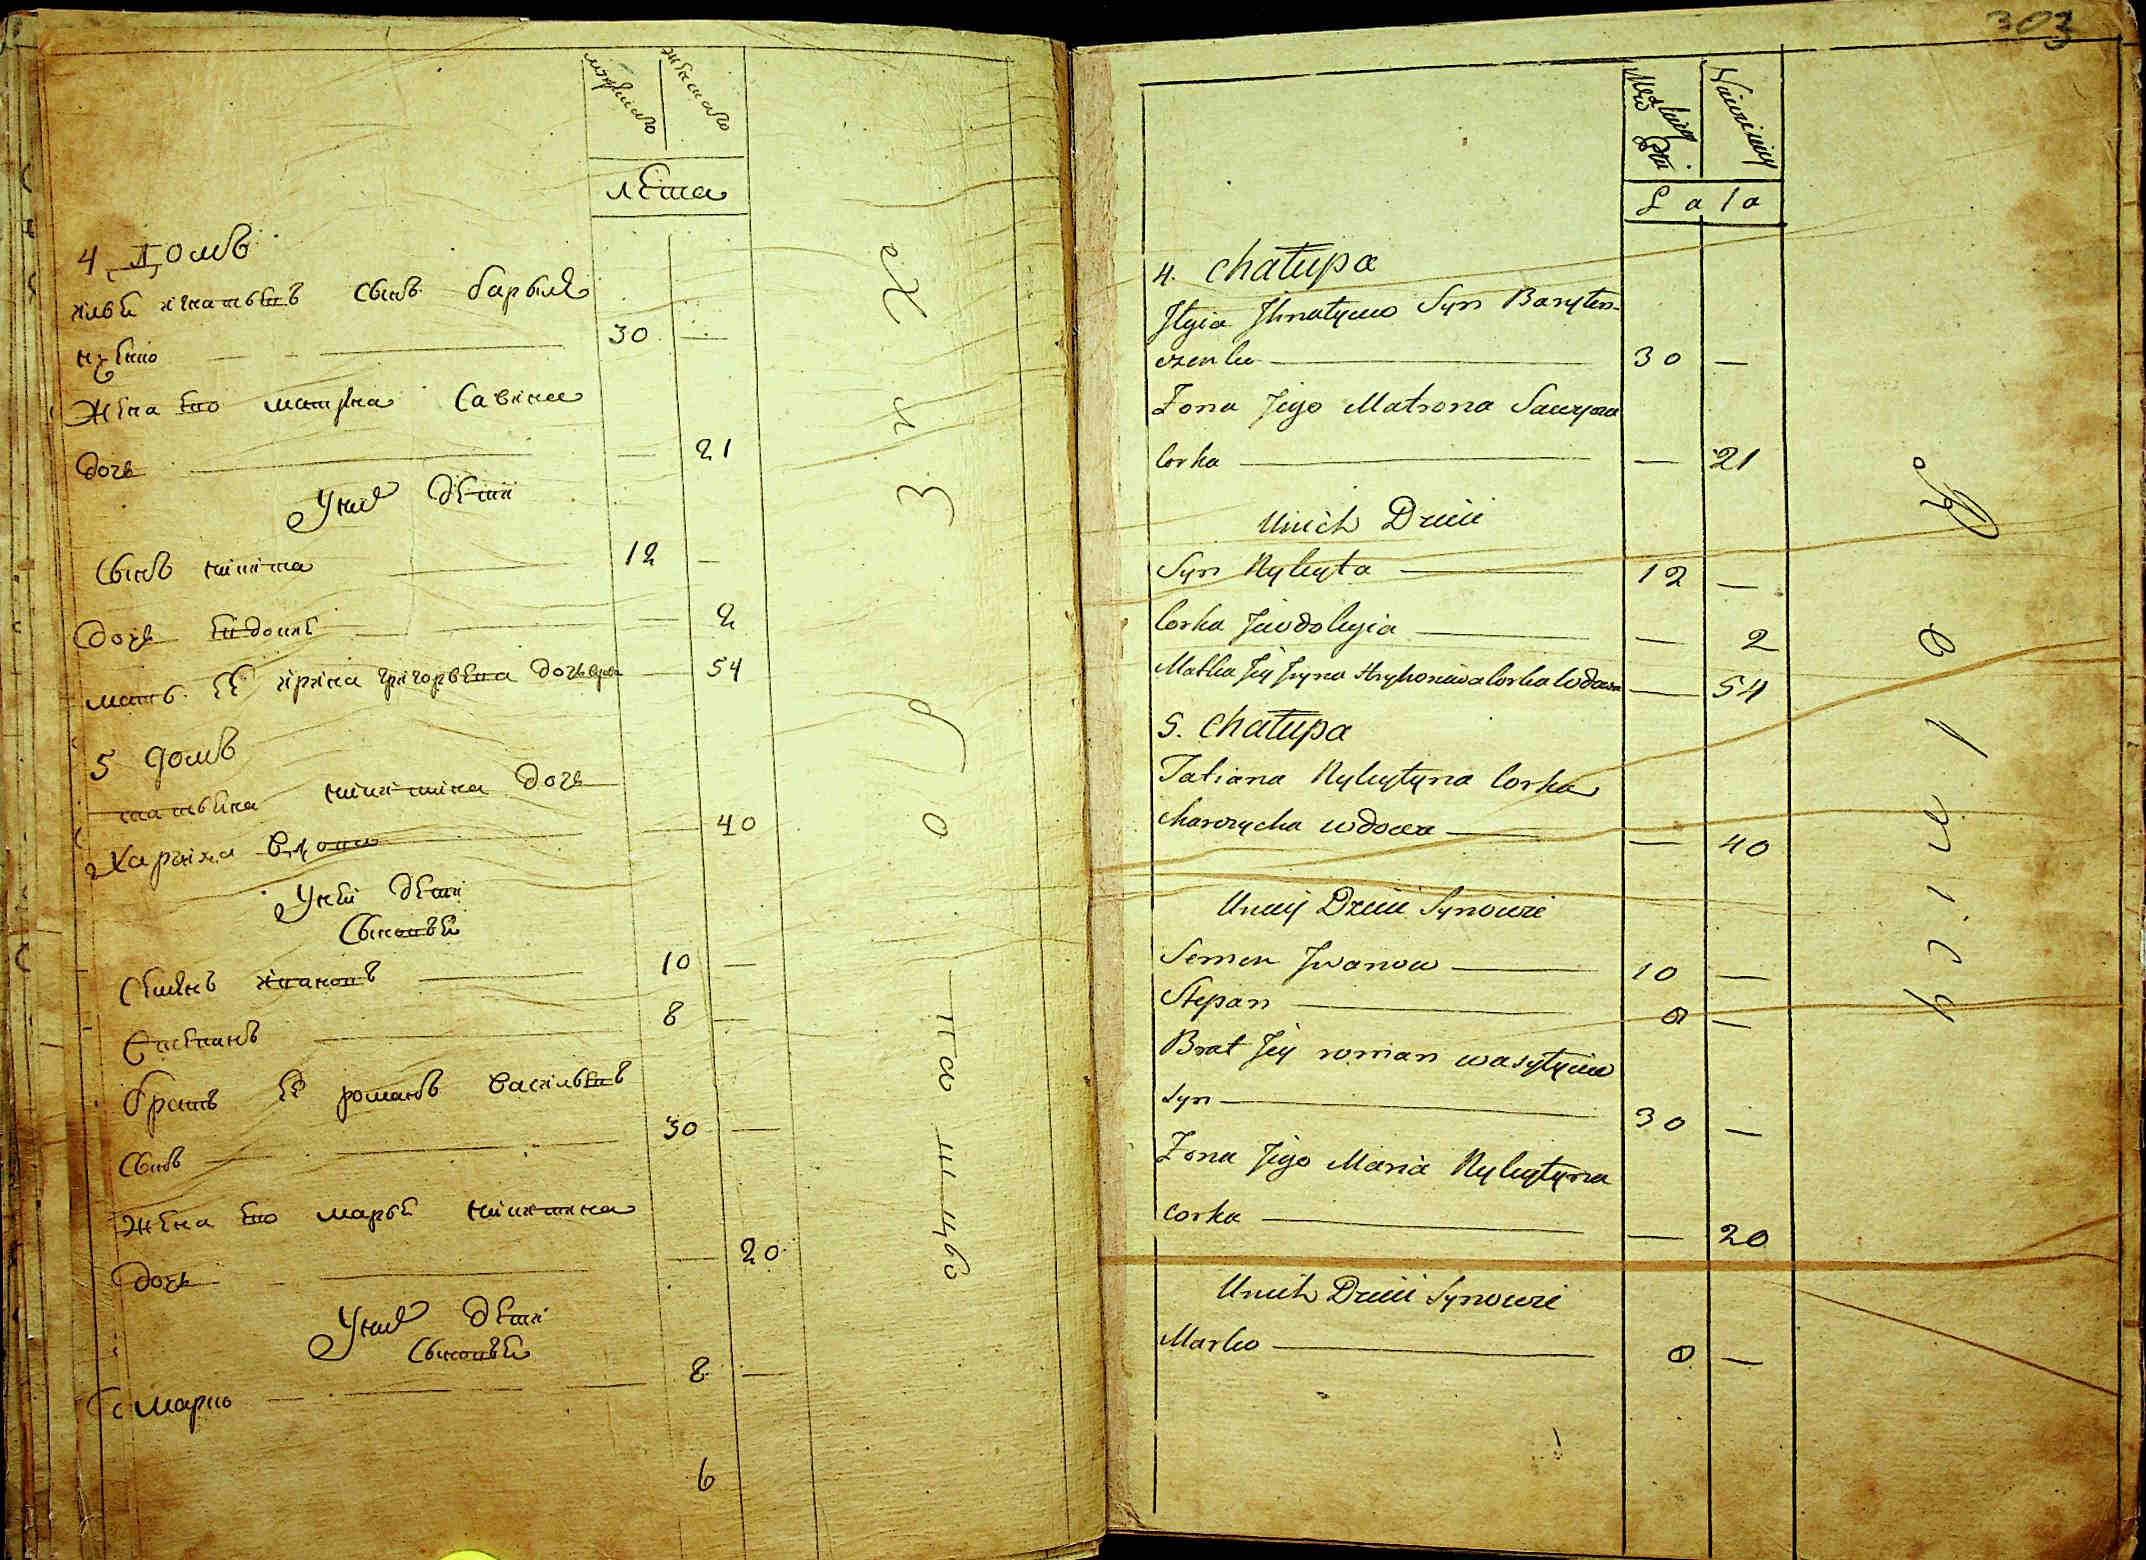 мужескаго
женскаго
лета
4 домъ
илья игнатьевъ сынъ барыле
нченко 30 —
жена его матрена савина
дочь — 21
У них дети
сынъ никита 12 —
дочь евдокия — 2
мать ее ирина григорьева дочь вдова — 54
5 домъ
татьяна никитина дочь
харчиха вдова — 40
У ней дети
сыновья
семенъ ивановъ 10 —
степанъ 8 —
братъ ее романъ васильевъ
сынъ 30 —
жена его марья никитина
дочь — 20
У них дети
сыновья
марко 8 —
6
303
Lata
4. Chałupa
Ilyia Ihnatyiew Syn Baryłen-
czenko 30 —
Zona Jego Matrona Sawyna
Corka — 21
Unich Dzieci
Syn Nykyta 12 —
Corka Jewdokyia — 2
Matka Jey Iryna Hryhoriewa Corka Wdowa — 54
5. Chałupa
Tatiana Nykytyna Corka
Charczycha wdowa — 40
Uniey Dzieci Synowie
Semen Iwanow 10 —
Stepan 8 —
Brat Jey roman wasyłyiew
syn 30 —
Zona Jego Maria Nykytyna
corka — 20
Unich Dzieci Synowie
Marko 8 —